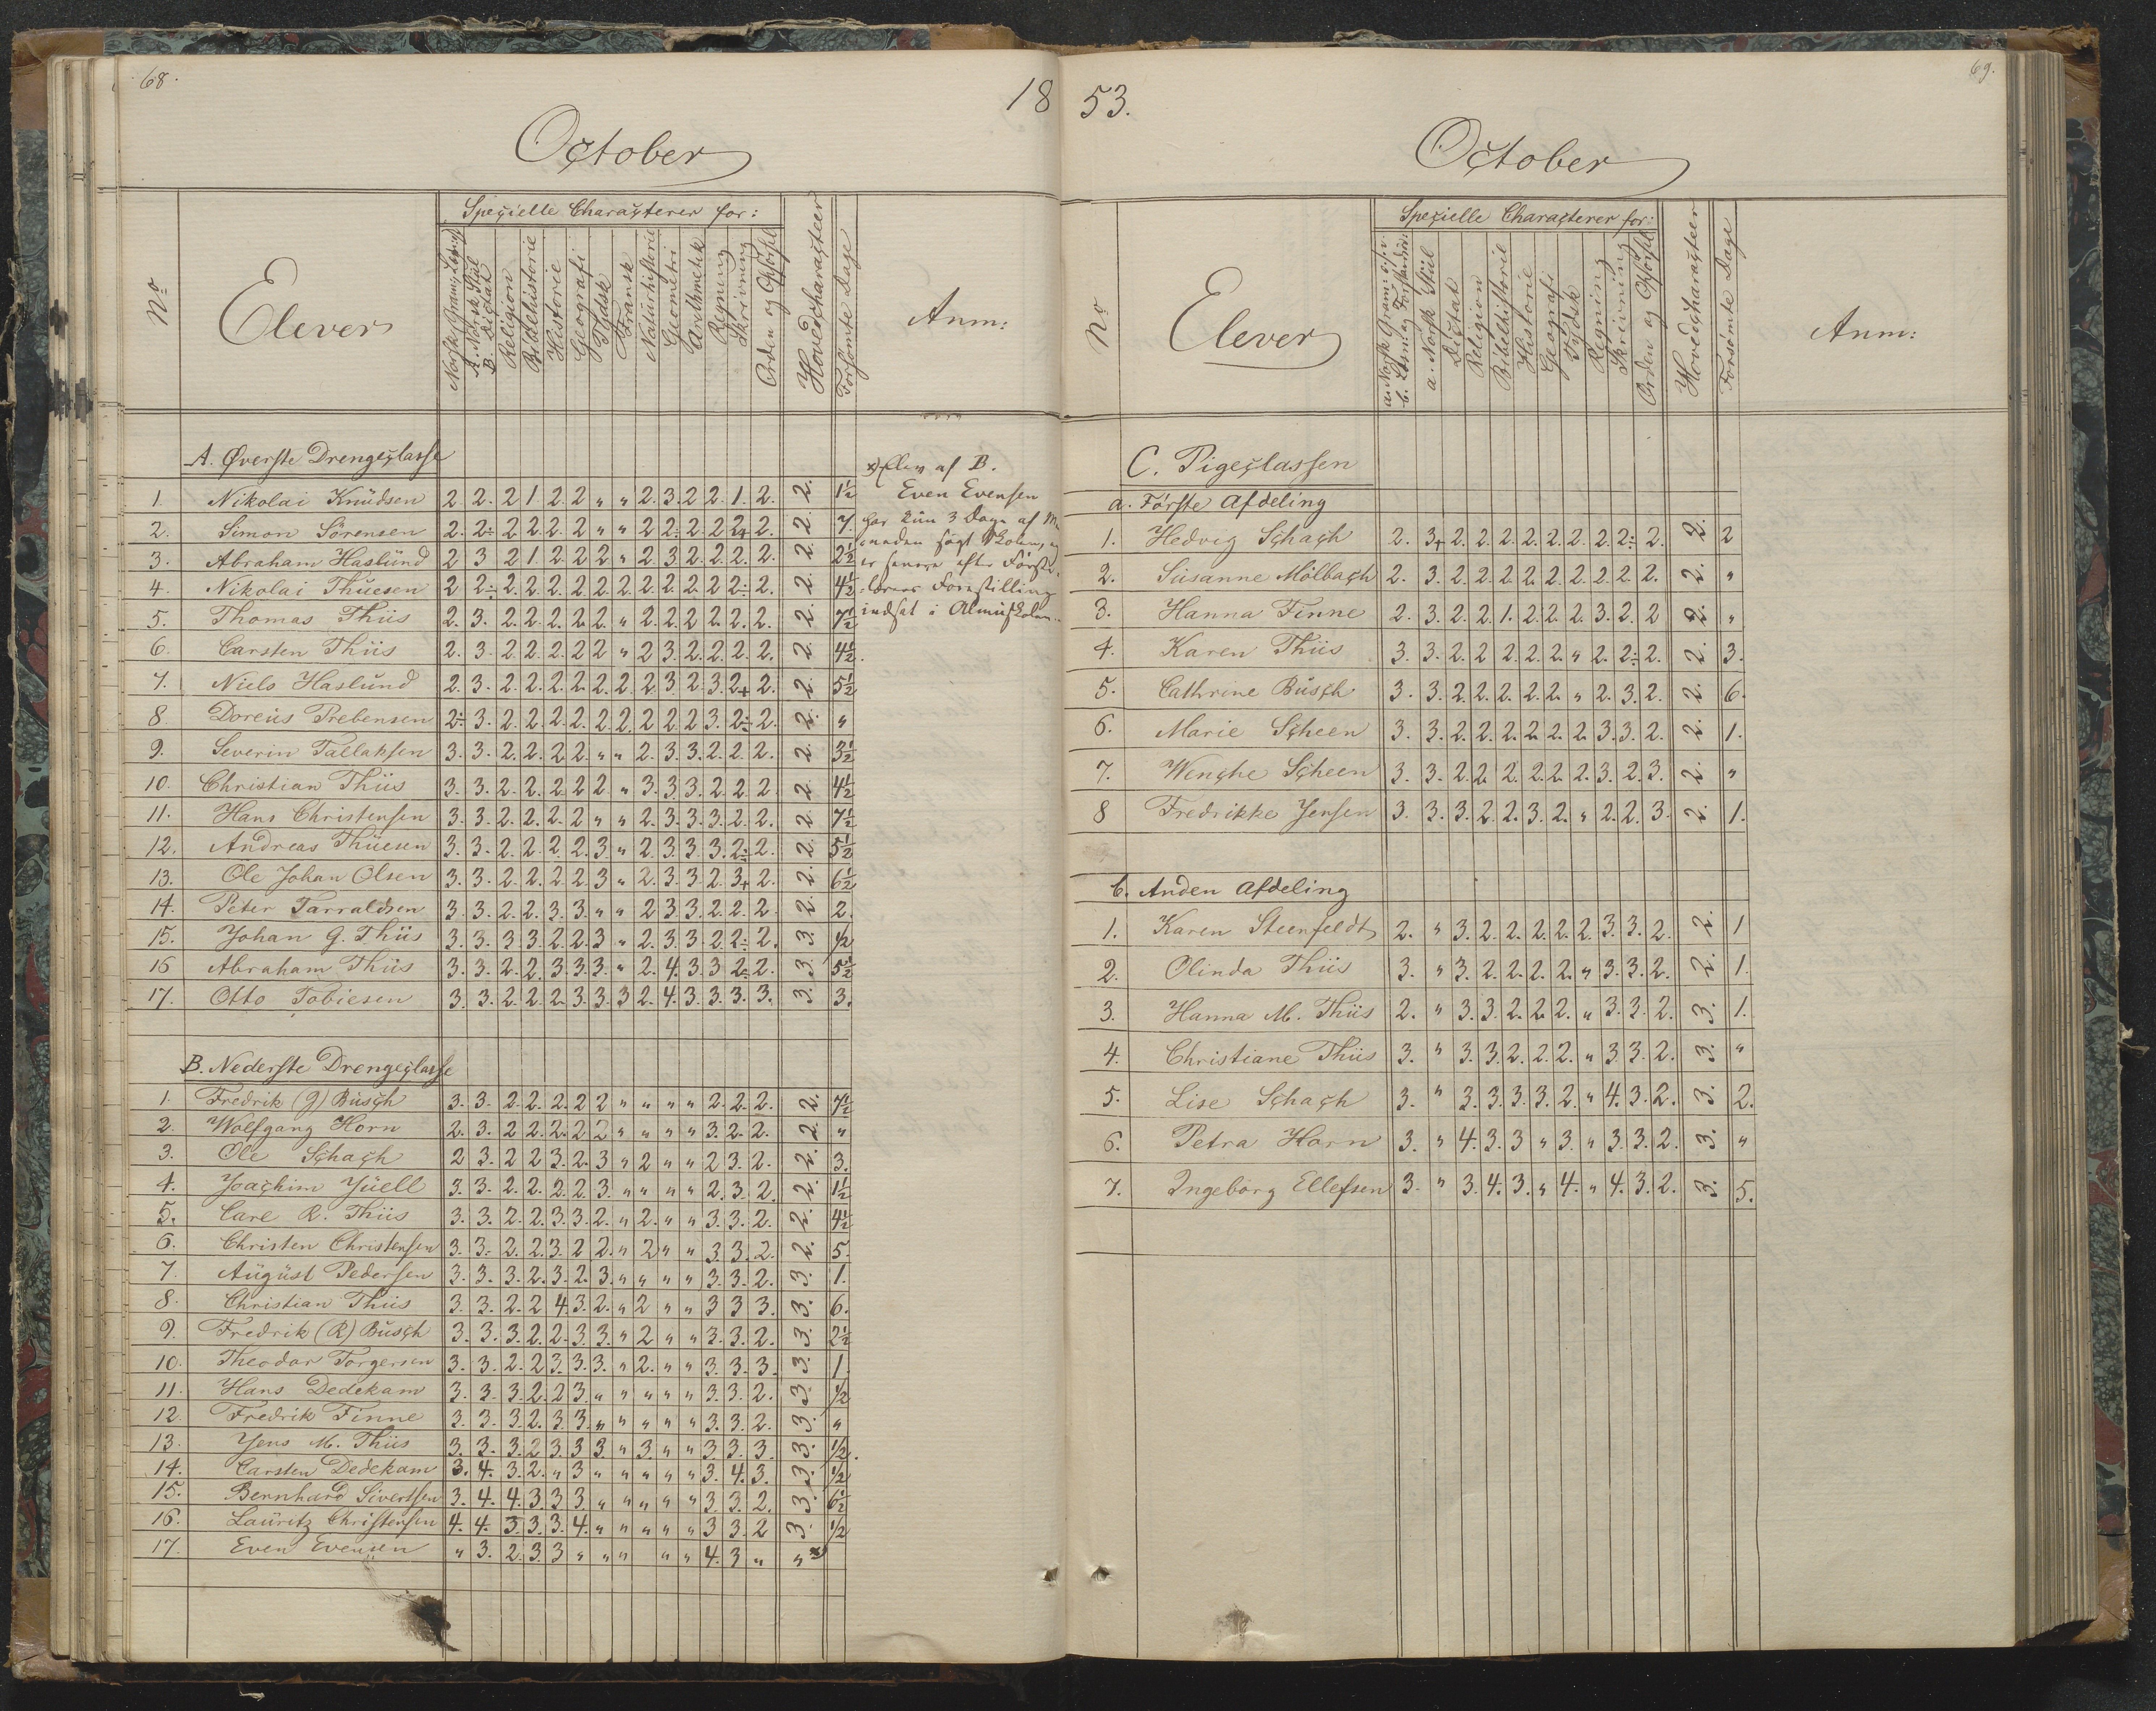 68.
18
October
No
Elever
Speçielle Characterer for:
Norsk Gram: Læsning
A. Norsk Stiil
B. Diçtat
Religion
Bibelhistorie
Historie
Geografi
Tydsk
Fransk
Naturhistorie
Geometri
Arithmetik
Regning
Skrivning
Orden og Opførsel
Hovedcharaçteer
Forsømte Dage
Anm:
A. Øverste Drengeçlasse
1. Nikolai Knudsen 2 2. 2 1. 2. 2 " " 2. 3. 2 2. 1. 2. 2. 1½
2. Simon Sörensen 2. 2÷ 2 2. 2. 2 " " 2 2. 2. 2 2+ 2. 2. 7.
3. Abraham Haslund 2 3 2 1. 2. 2 2 " 2 3. 2. 2. 2. 2. 2. 2½
4. Nikolai Thuesen 2 2÷ 2. 2. 2. 2. 2. 2. 2. 2. 2. 2 2÷ 2. 2. 4½
5. Thomas Thiis 2. 3. 2. 2. 2. 2. 2. " 2. 2. 2. 2. 2. 2. 2. 7½
6. Carsten Thiis 2. 3. 2. 2. 2. 2 2 " 2 3. 2. 2. 2. 2. 2. 4½.
7. Niels Haslund 2. 3. 2. 2. 2. 2. 2. 2. 2. 3. 2. 3. 2+ 2. 2. 5½
8 Doreus Prebensen 2÷ 3. 2. 2. 2. 2. 2. 2. 2 2 2 3. 2÷ 2. 2. "
9. Severin Tallaksen 3. 3. 2. 2. 2. 2. " " 2. 3. 3. 2. 2. 2. 2. 3½
10. Christian Thiis 3. 3. 2. 2. 2. 2 2 " 3. 3. 3. 2 2 2 2. 4½
11. Hans Christensen 3. 3. 2. 2. 2. 2 " " 2. 3. 3. 3. 2. 2. 2. 7½
12. Andreas Thuesen 3. 3. 2. 2. 2. 2. 3. " 2. 3. 3. 3. 2÷ 2. 2. 5½
13. Ole Johan Olsen 3. 3. 2. 2. 2. 2. 3 " 2. 3. 3. 2 3+ 2. 2. 6½
14. Peter Tarraldsen 3. 3. 2. 2. 3. 3. " " 2 3. 3. 2. 2. 2. 2. 2.
15. Johan G. Thiis 3. 3. 3 3. 2. 2. 3 " 2. 3. 3. 2. 2÷ 2. 3. ½
16 Abraham Thiis 3. 3. 2. 2. 3. 3. 3. " 2. 4. 3. 3 2÷ 2. 3. 5½
17. Otto Tobiesen 3. 3. 2. 2. 2. 3. 3. 3 2. 4. 3. 3. 3. 3. 3. 3.
B. Nederste Drengeçlasse
1. Fredrik (G) Busçh 3. 3. 2. 2. 2. 2 2 " " " " 2. 2. 2. 2. 7½
2. Wolfgang Horn 2. 3. 2 2. 2. 2 2 " " " " 3. 2. 2. 2. "
3. Ole Sçhaçh 2 3. 2 2 3. 2. 3 " 2 " " 2 3. 2. 2. 3.
4. Joaçhim Juell 3. 3. 2. 2. 2. 2. 3. " " " " 2. 3. 2. 2. 1½
5. Carl R. Thiis 3. 3. 2. 2. 3. 3. 2. " 2. " " 3. 3. 2. 2. 4½
6. Christen Christensen 3. 3. 2. 2. 3. 2 2. " 2 " " 3. 3. 2. 2. 5.
7. August Pedersen 3. 3. 3. 2. 3. 2. 3. " " " " 3. 3. 2. 3. 1.
8. Christian Thiis 3. 3. 2. 2 4. 3. 2. " 2 " " 3 3 3. 3. 6.
9. Fredrik (R) Busçh 3. 3. 3. 2 2. 3. 3. " 2 " " 3. 3. 2. 3. 2½
10. Theodor Torgersen 3. 3. 2. 2 3. 3. 3. " 2. " " 3. 3. 3. 3. 1.
11. Hans Dedekam 3. 3. 3. 2. 2 3. " " " " " 3. 3. 2. 3. ½
12. Fredrik Finne 3. 3. 3. 2. 3. 3. " " " " " 3. 3. 2. 3. "
13. Jens M. Thiis 3. 3. 3. 2 3. 3. 3. " 3. " " 3. 3. 3. 3. ½.
14. Carsten Dedekam 3. 4. 3. 2. " 3 " " " " " 3. 4. 3. 3. ½
15. Bernhard Sivertsen 3. 4. 4. 3. 3 3. " " " " " 3. 3. 2. 3. 6½
16. Lauritz Christensen 4. 4. 3. 3. 3. 4. " " " " " 3 3. 2 3. ½
17. Even Evensen " 3. 2. 3. 3 " " " " " 4. 3 " " x)
x) Elev af B.
Even Evensen
har kun 3 Dage af Ma
aneden søgt Skolen, og
er senere efter Første-
lærers Forestilling
indsat i Almuskolen.
69.
53.
October
No
Elever
Speçielle Characterer for:
a. Norsk Gram: o.s.v.
b. Læsn. og Forstandsöv:
a. Norsk Stiil
Diçtat
Religion
Bibelhistorie
Historie
Geografi
Tydsk
Regning
Skrivning
Orden og Opførsel
Hovedçharaçteer
Forsømte Dage
Anm:
C. Pigeçlassen
a. Første Afdeling
1. Hedvig Sçhaçh 2. 3+ 2. 2. 2. 2. 2. 2. 2. 2÷ 2. 2. 2
2. Susanne Mölbaçh 2. 3. 2. 2. 2. 2. 2. 2. 2. 2. 2. 2. "
3. Hanna Finne 2. 3. 2. 2. 1. 2. 2. 2. 3. 2. 2 2. "
4. Karen Thiis 3. 3. 2. 2 2. 2. 2. " 2. 2÷ 2. 2. 3.
5. Cathrine Busçh 3. 3. 2. 2. 2. 2. 2. " 2. 3. 2. 2. 6.
6. Marie Sçheen 3. 3. 2. 2. 2. 2. 2. 2. 3. 3. 2. 2. 1.
7. Wençhe Sçheen 3. 3. 2. 2. 2. 2. 2. 2. 3. 2. 3. 2. "
8 Fredrikke Jensen 3. 3. 3. 2. 2. 3. 2. " 2. 2. 3. 2. 1.
b. Anden Afdeling
1. Karen Steenfeldt 2. " 3. 2. 2. 2. 2. 2. 3. 3. 2. 2. 1
2. Olinda Thiis 3. " 3. 2. 2. 2. 2. " 3. 3. 2. 2. 1.
3. Hanna M. Thiis 2. " 3. 3. 2. 2. 2. " 3. 3. 2. 3. 1.
4. Christiane Thiis 3. " 3. 3. 2. 2. 2. " 3. 3. 2. 3. "
5. Lise Sçhaçh 3. " 3. 3. 3. 3. 2. " 4. 3. 2. 3. 2.
6. Petra Horn 3. " 4. 3. 3 " 3. " 3. 3. 2. 3. "
7. Ingeborg Ellefsen 3. " 3. 4. 3. " 4. " 4. 3. 2. 3. 5.